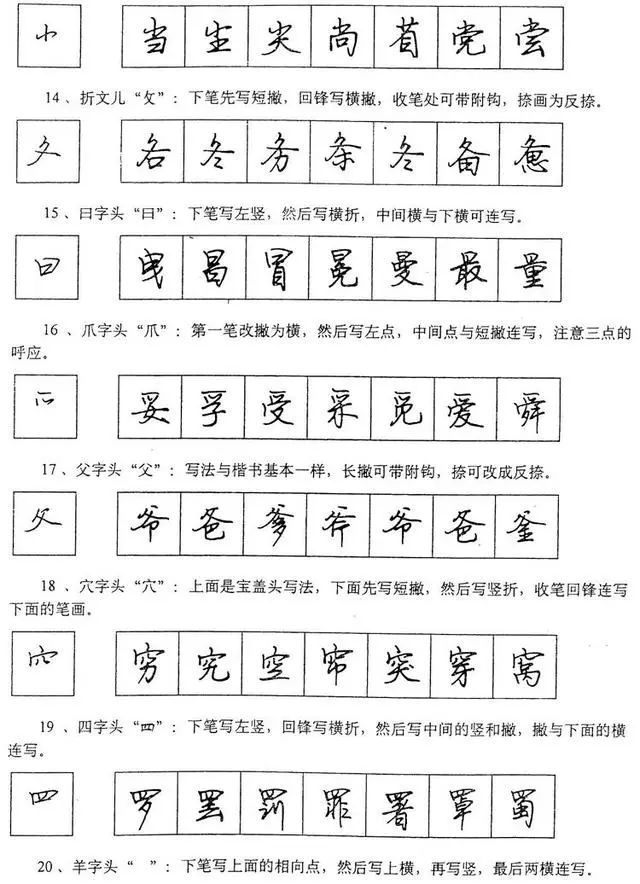 ⺌ 当 生 尖 尚 省 党 尝
14、折文儿“攵”：下笔先写短撇，回锋写横撇，收笔处可带附钩，捺画为反捺。
夂 各 冬 务 条 冬 备 惫
15、曰字头“曰”：下笔写左竖，然后写横折，中间横与下横可连写。
曰 曳 昌 冒 冕 曼 最 量
16、爪字头“爪”：第一笔改撇为横，然后写左点，中间点与短撇连写，注意三点的
呼应。
爫 妥 孚 受 采 觅 爱 舜
17、父字头“父”：写法与楷书基本一样，长撇可带附钩，捺可改成反捺。
父 爷 爸 爹 斧 爷 爸 釜
18、穴字头“穴”：上面是宝盖头写法，下面先写短撇，然后写竖折，收笔回锋连写
下面的笔画。
穴 穷 究 空 帘 突 穿 窝
19、四字头“罒”：下笔写左竖，回锋写横折，然后写中间的竖和撇，撇与下面的横
连写。
罒 罗 罢 罚 罪 署 罩 蜀
20、羊字头“ ”：下笔写上面的相向点，然后写上横，再写竖，最后两横连写。